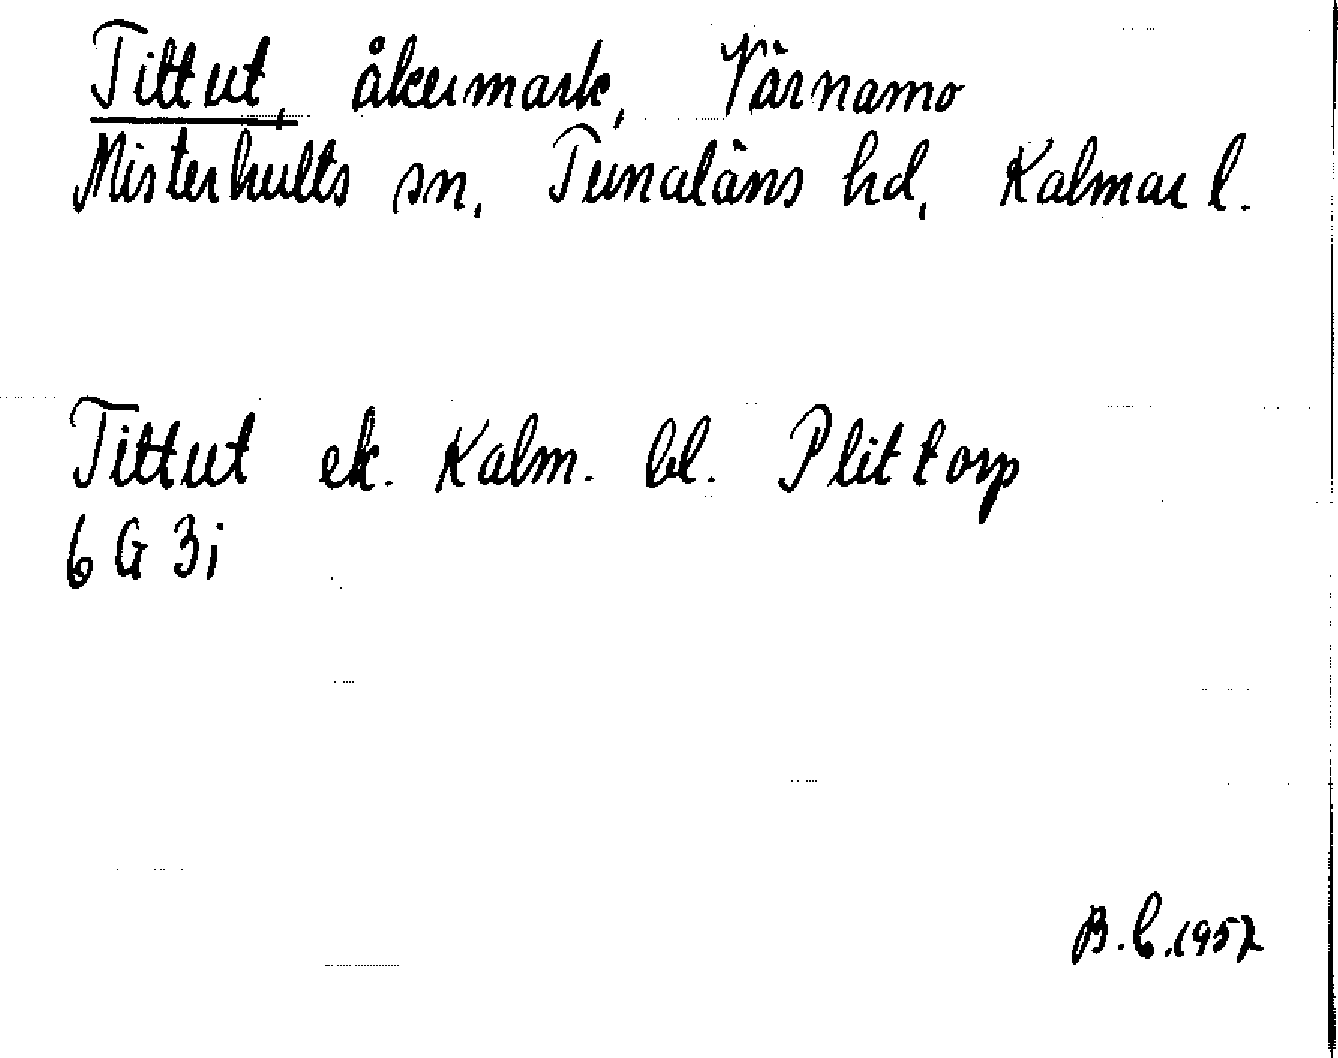 Tittut, åkermark, Värnamo
Misterhults sn, Tunaläns hd, Kalmar l.
Tittut ek. Kalm. bl. Plittorp
6 G 3i
B.C.1957